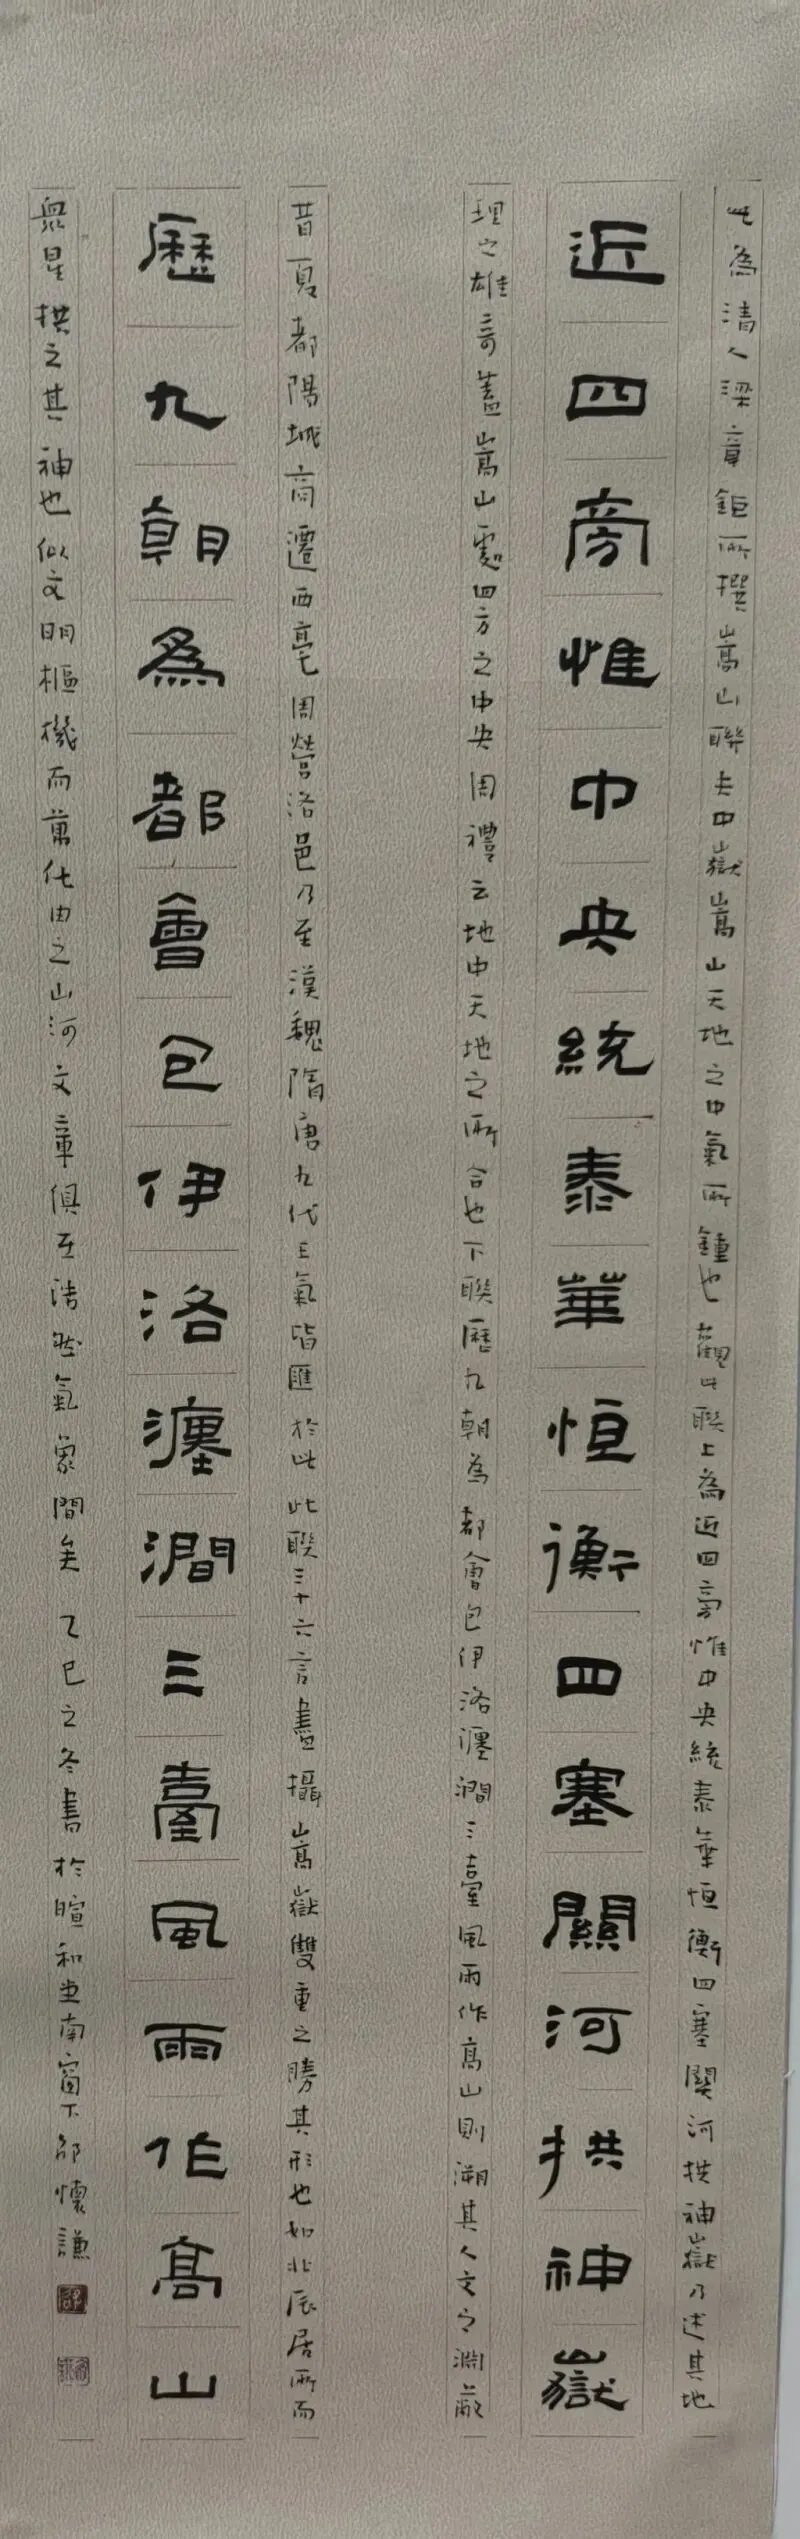 此為清人梁章鉅所撰嵩山聯夫中嶽嵩山天地之中氣所鍾也觀此聯上為近四旁惟中央統泰華恒衡四塞關河拱神嶽乃述其地
近四旁惟中央統泰華恒衡四塞關河拱神嶽
理之雄奇蓋嵩山處四方之中央周禮云地中天地之所合也下聯歷九朝為都會包伊洛瀍澗三臺風雨作高山則溯其人文之淵藪
昔夏都陽城商遷西亳周營洛邑乃至漢魏隋唐九代王氣皆匯於此此聯三十六言盡攝嵩嶽雙重之勝其形也如北辰居所而
歷九朝為都會包伊洛瀍澗三臺風雨作高山
眾星拱之其神也似文明樞機而萬化由之山河文章俱在浩然氣象間矣 乙巳之冬書於暄和堂南窗下邵懷謙